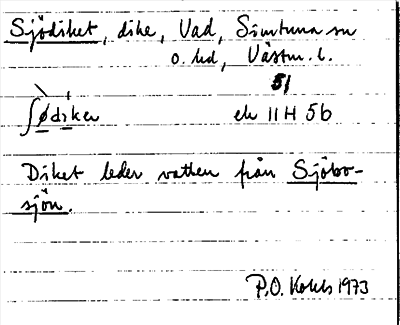 Sjödiket, dike, Vad, Simtuna sn
o. hd, Västm. l.
51
ʃødiker ek 11H 5b
Diket leder vatten från Sjöbo-
sjön.
P.O. Kohls 1973